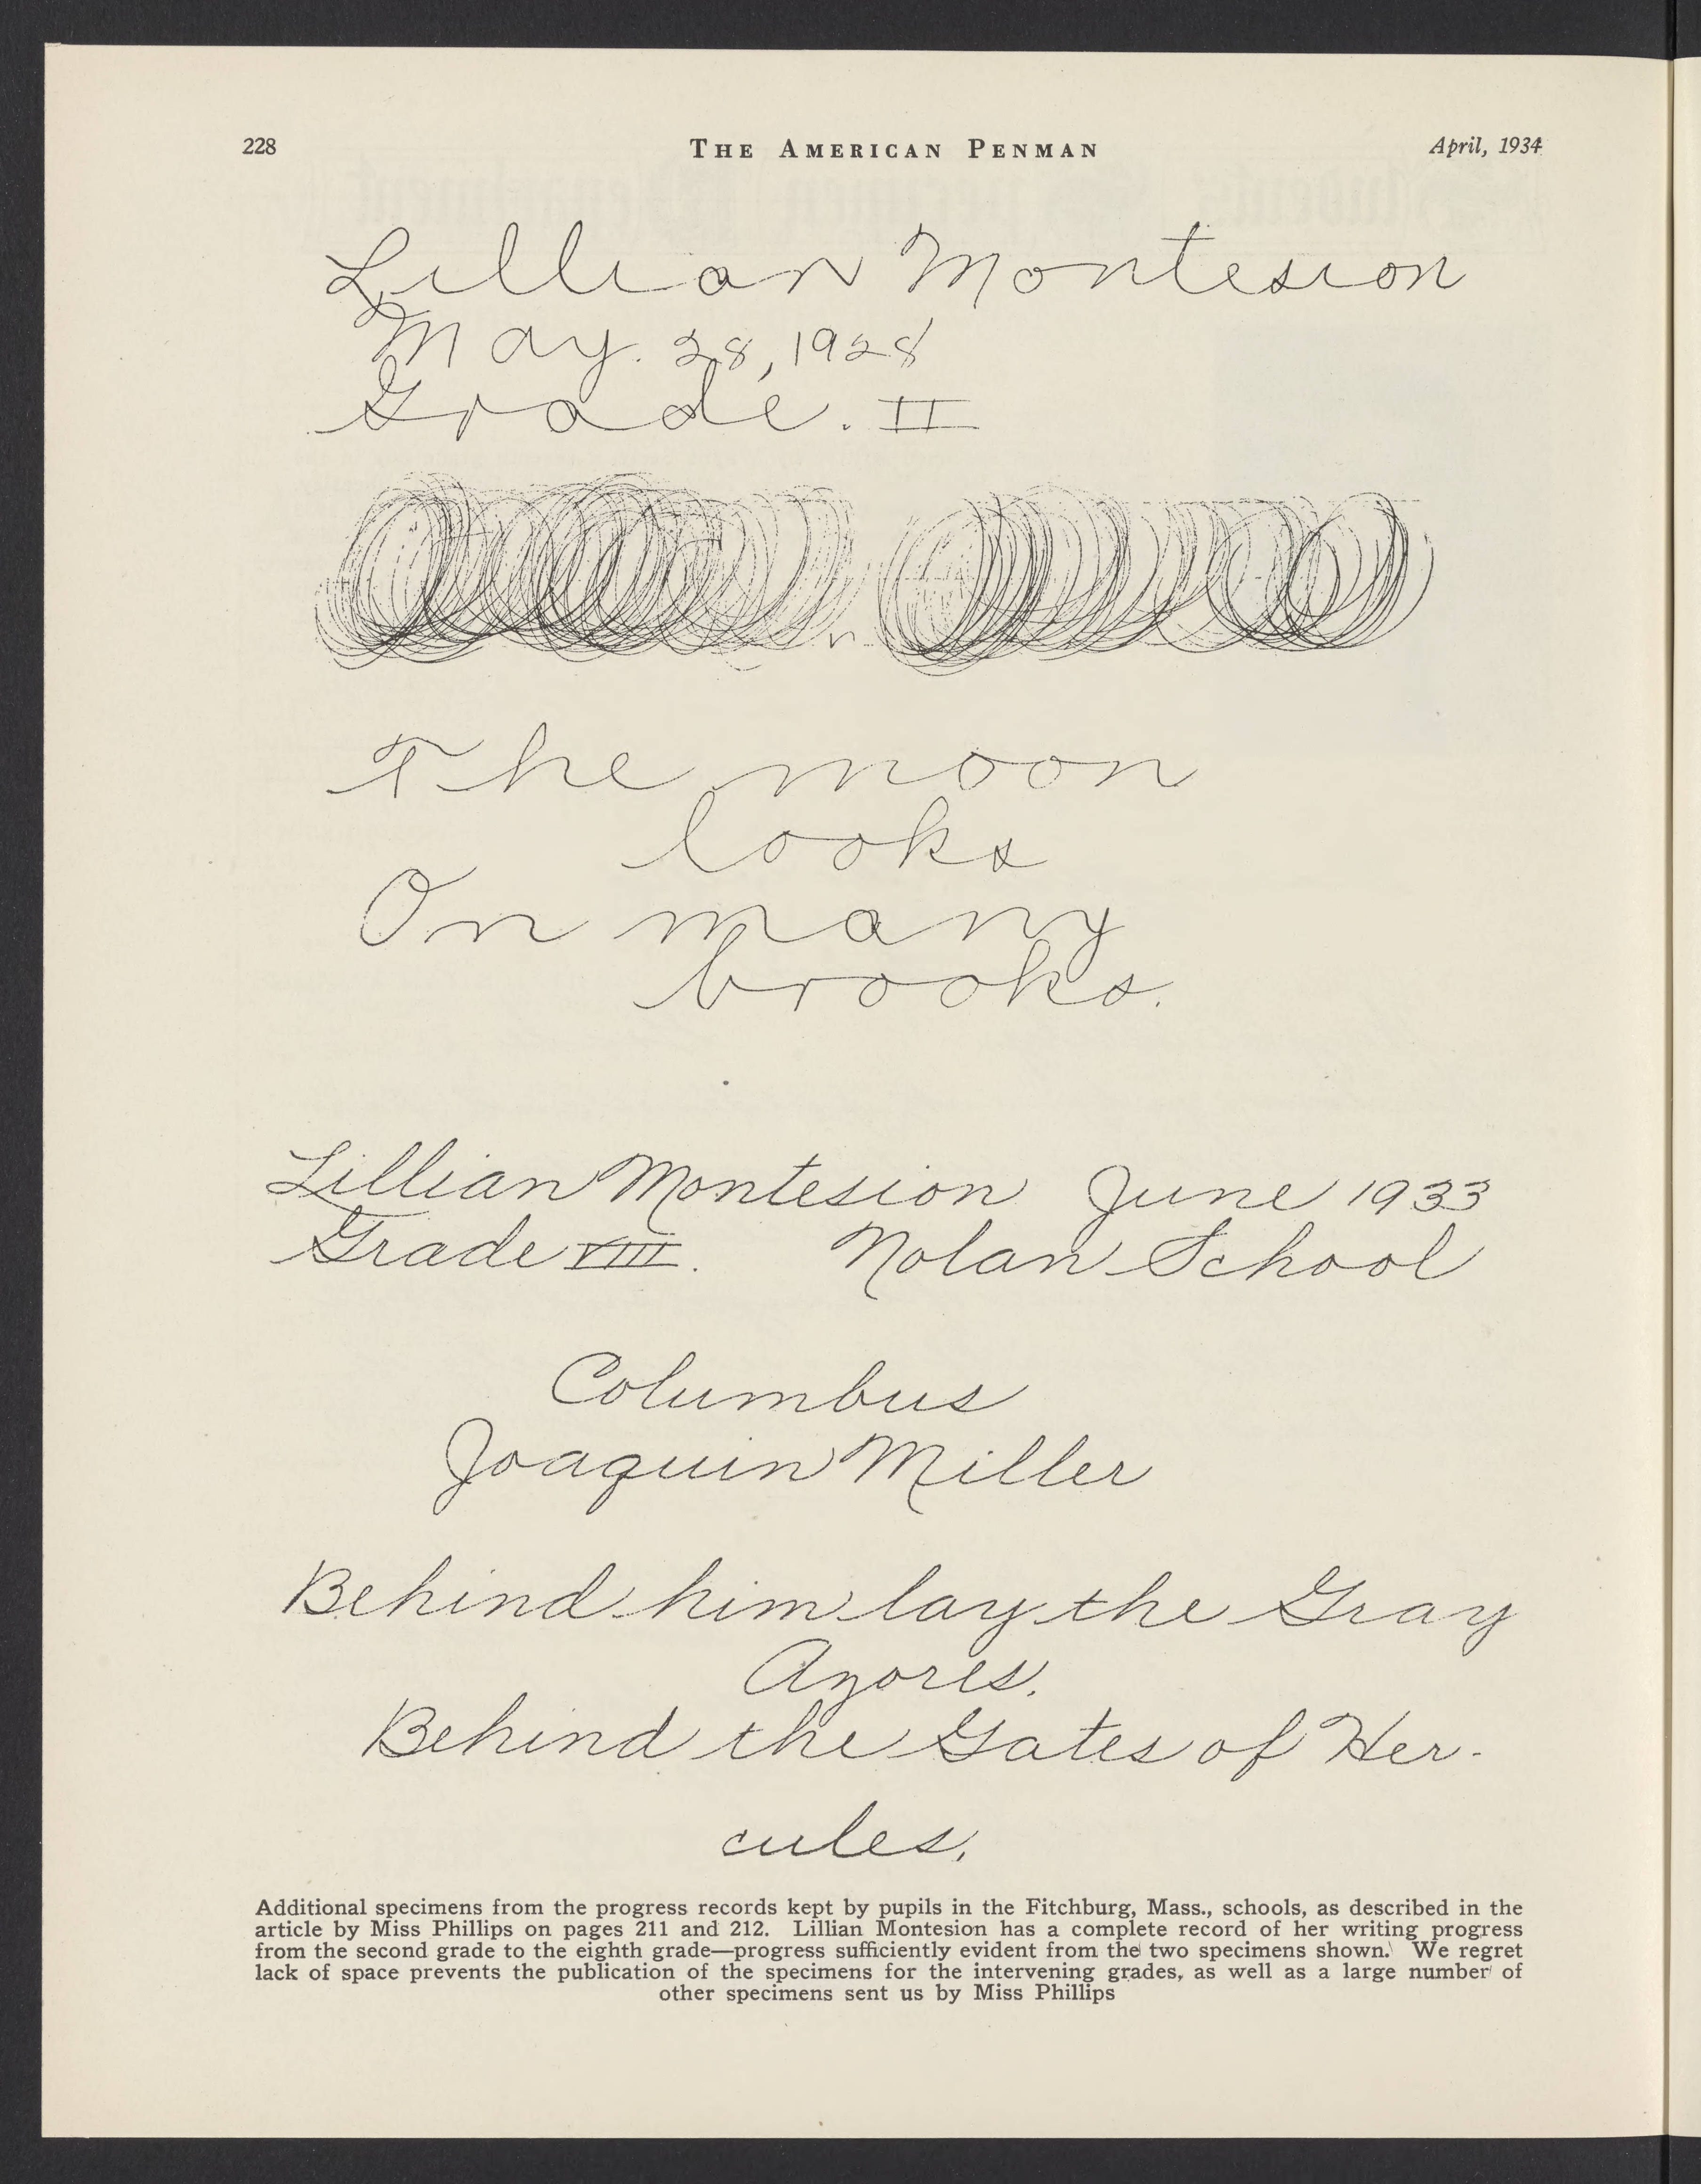 228 THE AMERICAN PENMAN April, 1934
Lillian Montesion
May. 28, 1928
Grade. II
The moon
looks
On many
brooks.
Lillian Montesion June 1933
Grade VIII. Nolan School
Columbus
Joaquin Miller
Behind him lay the Gray
Azores.
Behind the Gates of Her-
cules,
Additional specimens from the progress records kept by pupils in the Fitchburg, Mass., schools, as described in the
article by Miss Phillips on pages 211 and 212. Lillian Montesion has a complete record of her writing progress
from the second grade to the eighth grade—progress sufficiently evident from the two specimens shown. We regret
lack of space prevents the publication of the specimens for the intervening grades, as well as a large number of
other specimens sent us by Miss Phillips